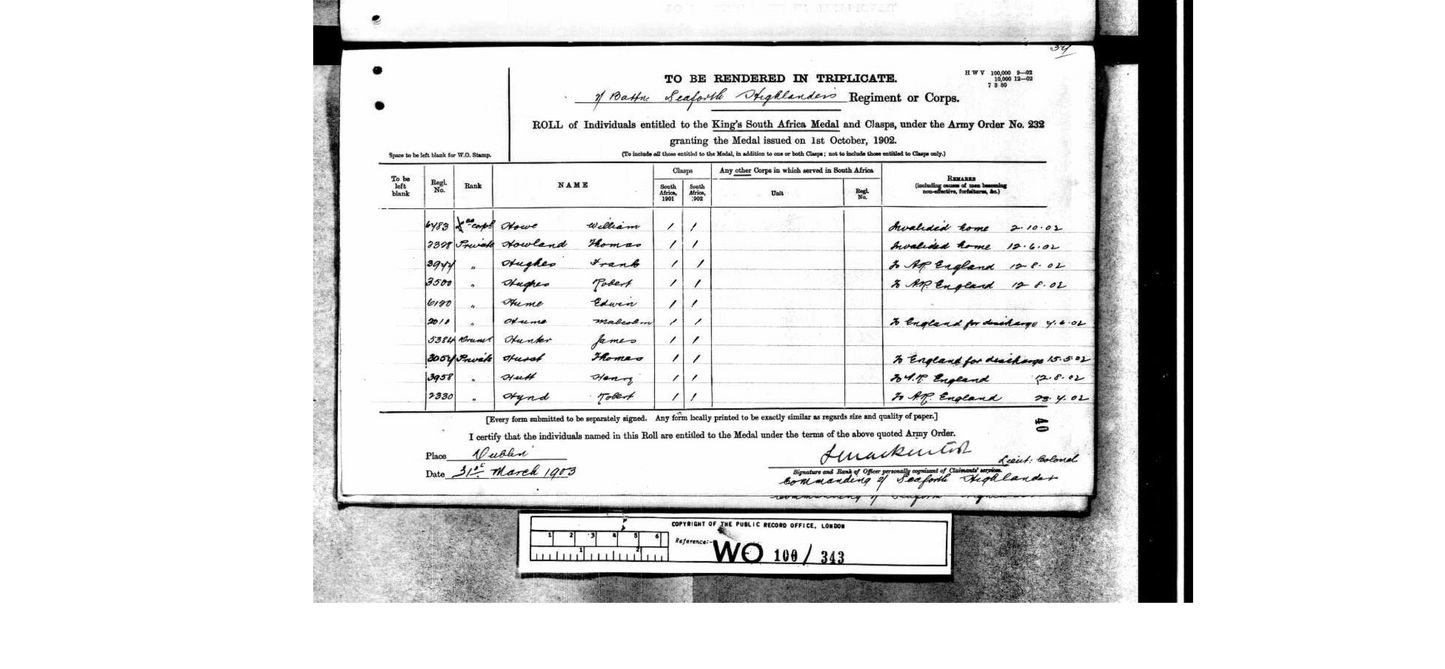 34
TO BE RENDERED IN TRIPLICATE.
H W V 100,000 9—02
10,000 12—02
7 3 50
2/ Battn Seaforth Highlanders Regiment or Corps.
ROLL of Individuals entitled to the King's South Africa Medal and Clasps, under the Army Order No. 232
granting the Medal issued on 1st October, 1902.
Space to be left blank for W.O. Stamp.
(To include all those entitled to the Medal, in addition to one or both Clasps; not to include those entitled to Clasps only.)
To be left blank
Regl. No.
Rank
NAME
Clasps
South Africa, 1901
South Africa, 1902
Any other Corps in which served in South Africa
Unit
Regl. No.
REMARKS
(including causes of men becoming non-effective, forfeitures, &c.)
6483 Corpl Howe William / / Invalided home 2.10.02
Private Howland Thomas / / Invalided home 12.6.02
3944 " Hughes Frank / / To AR England 12.8.02
3500 " Hughes Robert / / To AR England 12.8.02
" Hume Edwin / /
" Hume Malcolm / / To England for discharge 4.6.02
5384 Drumr Hunter James / /
3054 Private Hurst Thomas / / To England for discharge 15.5.02
3958 " Hutt Henry / / To A.R England 12.8.02
2330 " Hynd Robert / / To AR England 23.4.02
[Every form submitted to be separately signed. Any form locally printed to be exactly similar as regards size and quality of paper.]
40
I certify that the individuals named in this Roll are entitled to the Medal under the terms of the above quoted Army Order.
Place Dublin
Lieut: Colonel
Signature and Rank of Officer personally cognizant of Claimants' services.
Date 31st March 1903
Commanding 2/ Seaforth Highlanders
COPYRIGHT OF THE PUBLIC RECORD OFFICE, LONDON
1 2 3 4 5 6
1 2
Reference:- WO 100 / 343